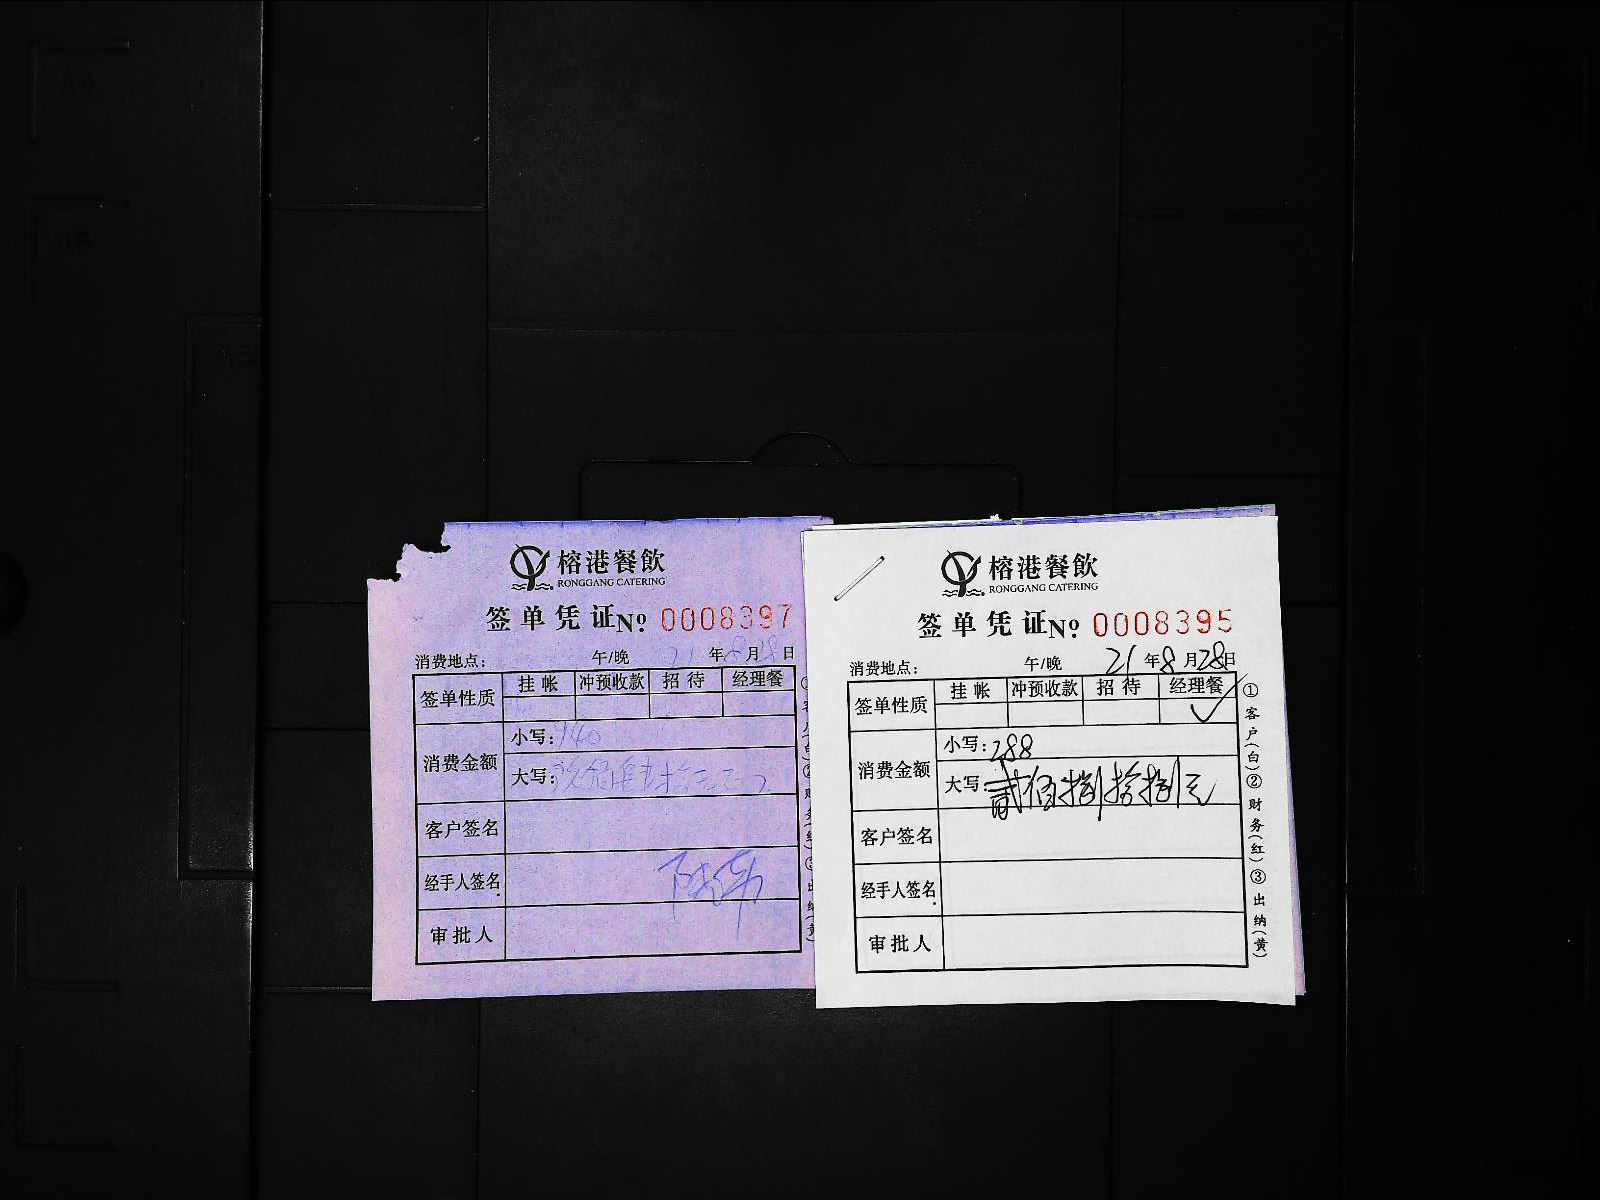 榕港餐飲
RONGGANG CATERING
签单凭证№ 0008397
消费地点: 午/晚 21 年 8 月 28 日
签单性质 挂帐 冲预收款 招待 经理餐
消费金额
小写: 140
大写:
客户签名
经手人签名
审批人
榕港餐飲
RONGGANG CATERING
签单凭证№ 0008395
消费地点: 午/晚 21 年 8 月 28 日
签单性质 挂帐 冲预收款 招待 经理餐
✓
消费金额
小写: 288
大写: 贰佰捌拾捌元
客户签名
经手人签名
审批人
①客户(白)②财务(红)③出纳(黄)
A4
A5